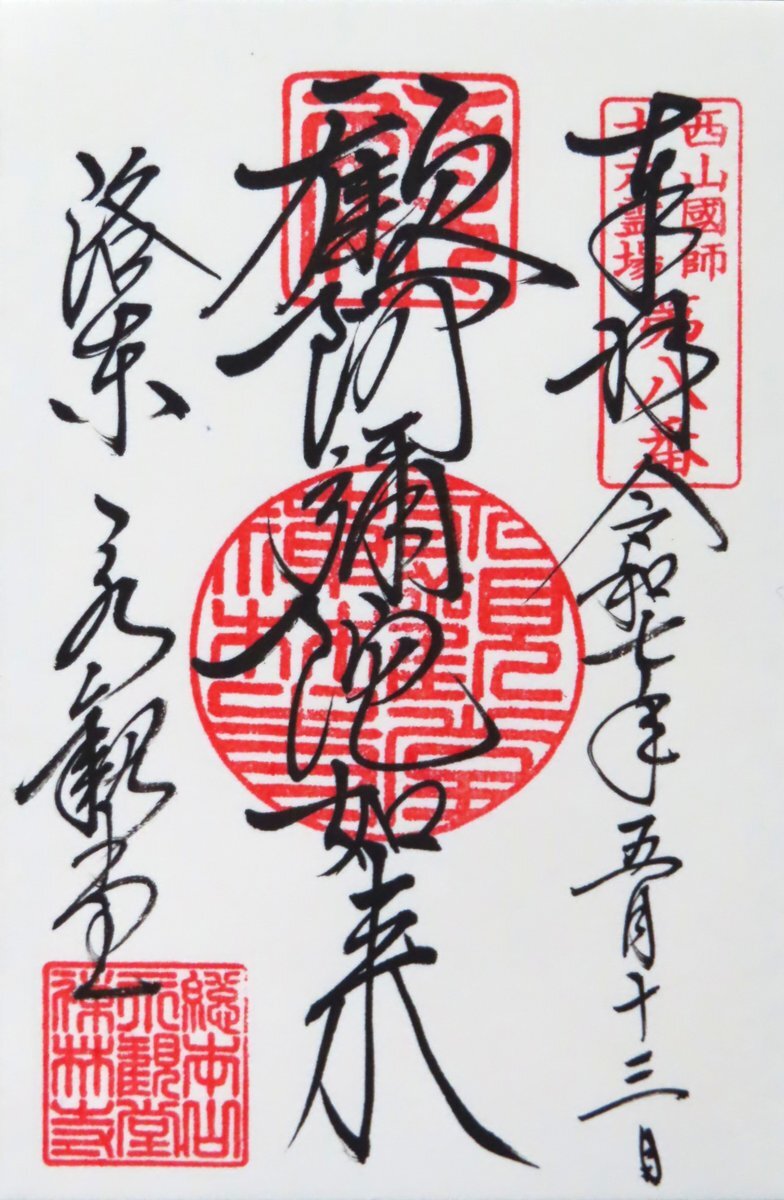 西山國師
十六霊場
第八番
奉拝
令和七年五月十三日
顧阿彌陀如来
洛東
永観堂
総本山
永観堂
禅林寺